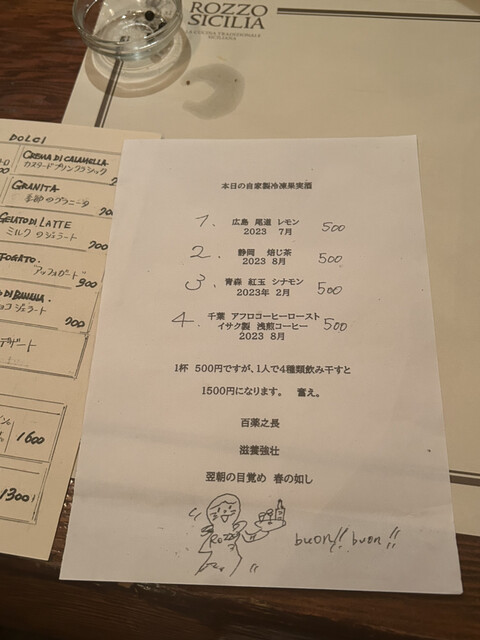 ROZZO
SICILIA
LA CUCINA TRADIZIONALE
SICILIANA
DOLCI
CREMA DI CALAMELLA
カスタードプリンクラシック
GRANITA
季節のグラニータ
GELATO DI LATTE
ミルクジェラート
900
FOGATO.
"アッフォガート"
900
ジェラート
900
デザート
1600
1300
本日の自家製冷凍果実酒
1. 広島 尾道 レモン 500
2023 7月
2. 静岡 焙じ茶 500
2023 8月
3. 青森 紅玉 シナモン 500
2023年 2月
4. 千葉 アフロコーヒーロースト 500
イサク製 浅煎コーヒー
2023 8月
1杯 500円ですが、1人で4種類飲み干すと
1500円になります。 奮え。
百薬之長
滋養強壮
翌朝の目覚め 春の如し
ROZZO
buon!! buon!!